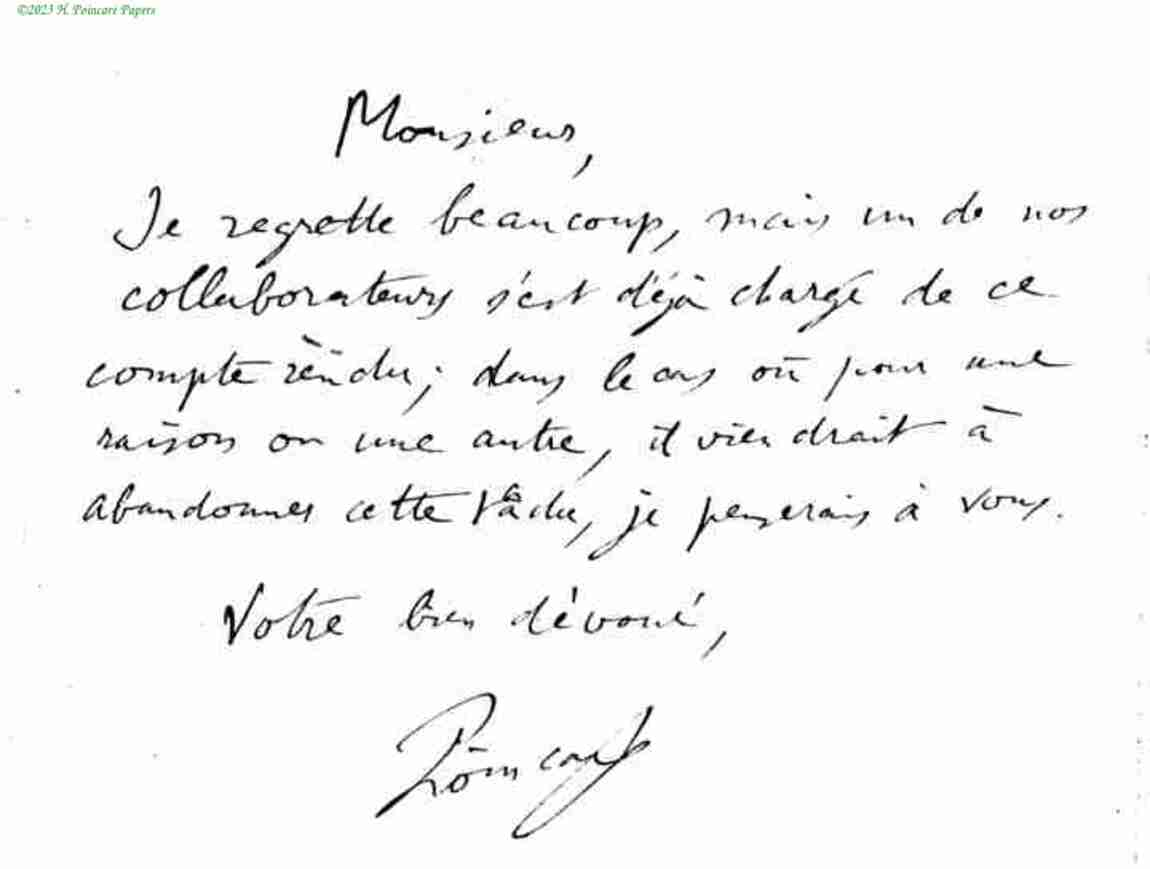 ©2023 H. Poincaré Papers
Monsieur,
Je regrette beaucoup, mais un de nos
collaborateurs s'est déjà chargé de ce
compte rendu; dans le cas où pour une
raison ou une autre, il viendrait à
abandonner cette tâche, je penserais à vous.
Votre bien dévoué,
Poincaré